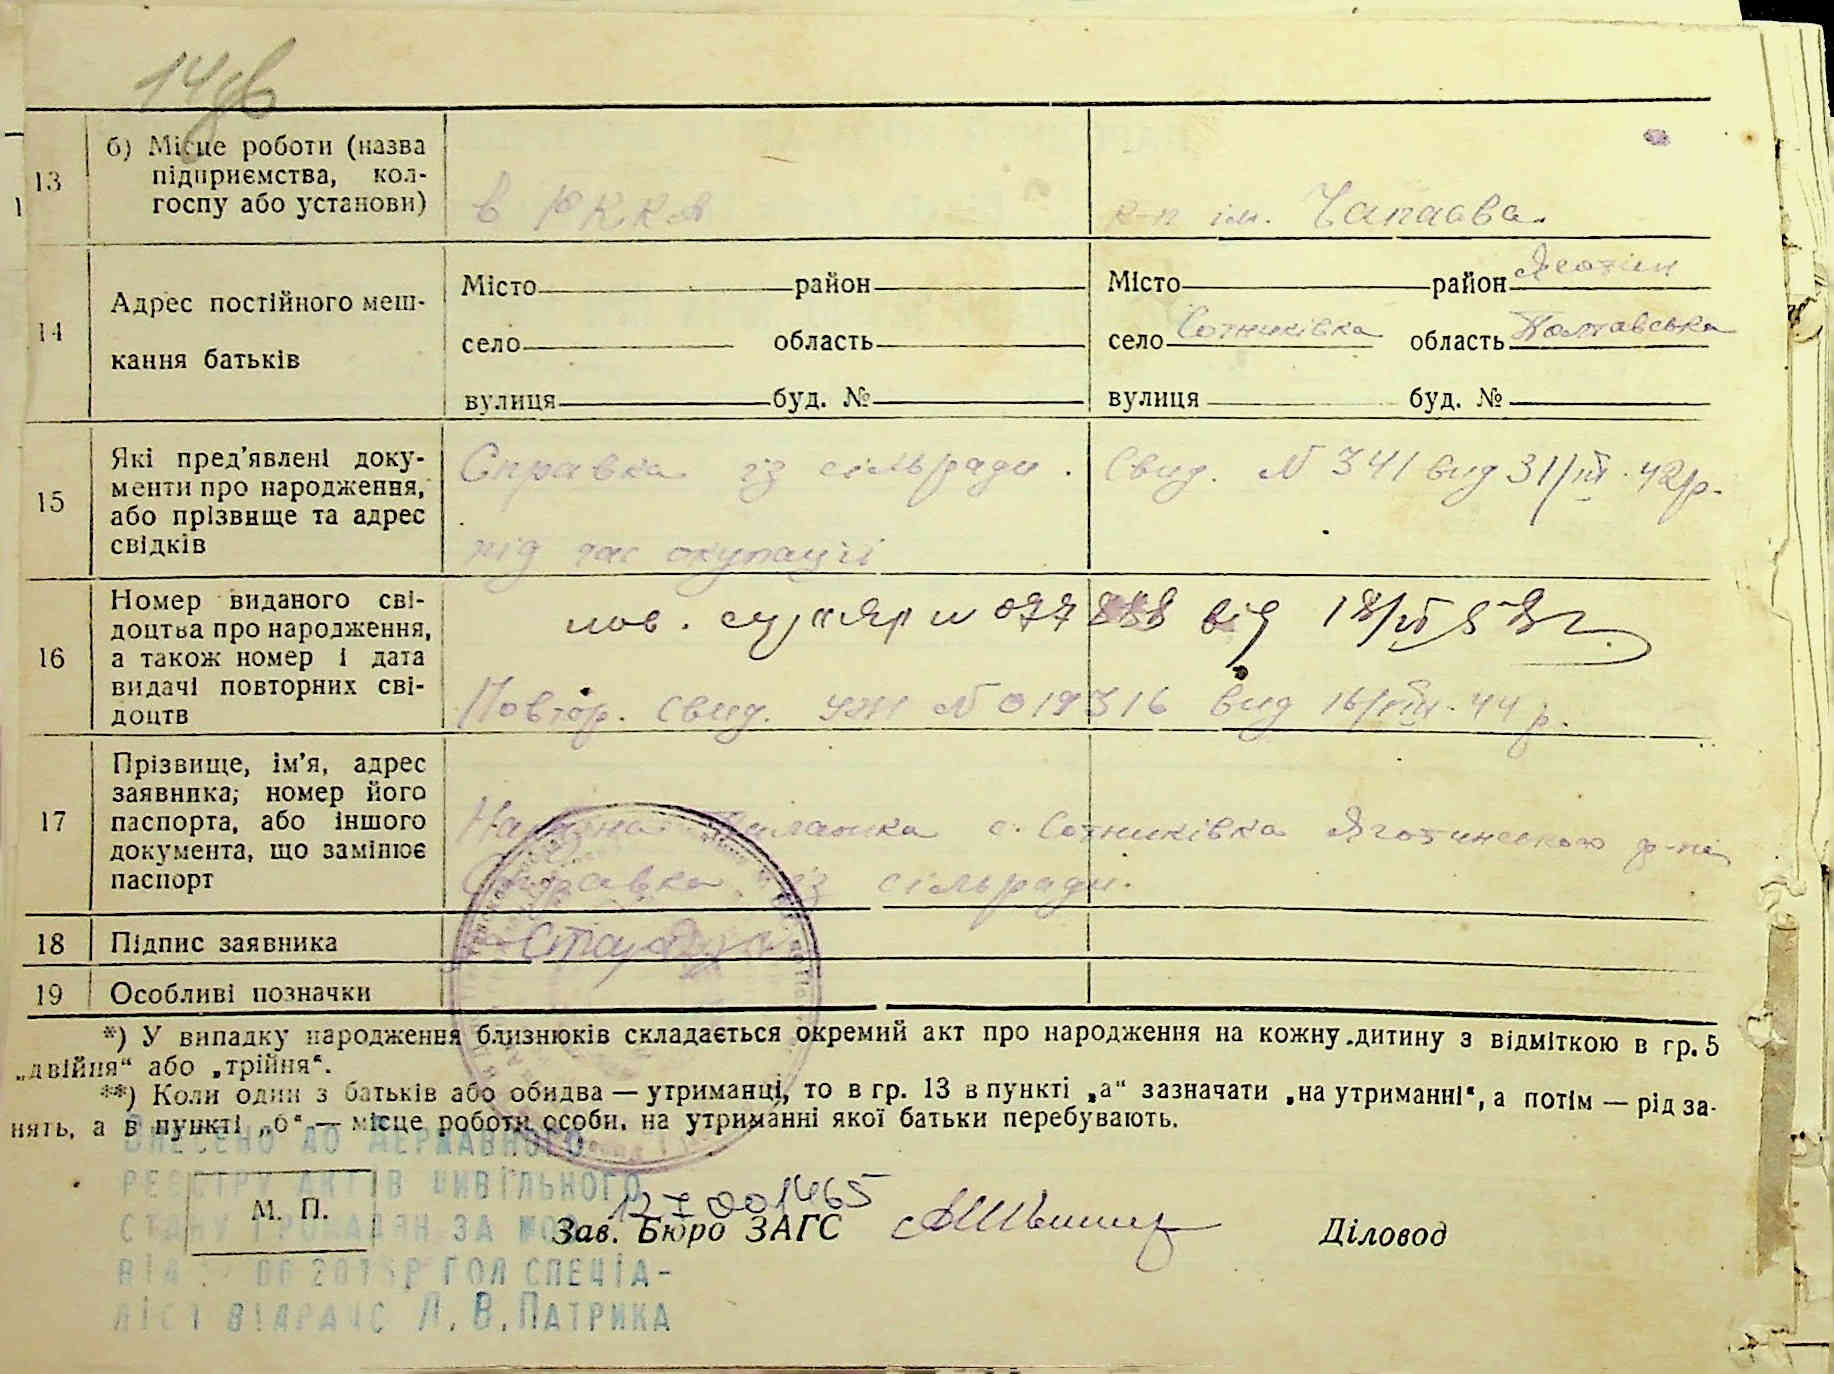 13
б) Місце роботи (назва
підприємства, кол-
госпу або установи)
в РККА
к-п ім. Чапаєва.
14
Адрес постійного меш-
кання батьків
Місто район
село область
вулиця буд. №
Місто район Яготин
село Сотниківка область Полтавська
вулиця буд. №
15
Які пред'явлені доку-
менти про народження,
або прізвище та адрес
свідків
Справка із сільради.
під час окупації
Свид. N 341 вид 31/III. 42р.
16
Номер виданого сві-
доцтва про народження,
а також номер і дата
видачі повторних сві-
доцтв
пов. N 077888 від
Повтор. свид. N 019316 вид 16/VIII. 44 р.
17
Прізвище, ім'я, адрес
заявника; номер його
паспорта, або іншого
документа, що замінює
паспорт
с. Сотниківка Яготинського р-на
Справка із сільради.
18
Підпис заявника
19
Особливі позначки
*) У випадку народження близнюків складається окремий акт про народження на кожну дитину з відміткою в гр. 5
„двійня“ або „трійня“.
**) Коли один з батьків або обидва — утриманці, то в гр. 13 в пункті „а“ зазначати „на утриманні“, а потім — рід за-
нять, а в пункті „б“ — місце роботи особи, на утриманні якої батьки перебувають.
ВНЕСЕНО ДО ДЕРЖАВНОГО
РЕЄСТРУ АКТІВ ЦИВІЛЬНОГО
СТАНУ ГРОМАДЯН ЗА №
127001465
М. П.
Зав. Бюро ЗАГС
Діловод
ВІД 06 2015Р ГОЛ СПЕЦІА-
ЛІСТ ВІДРАЦС Л.В.ПАТРИКА